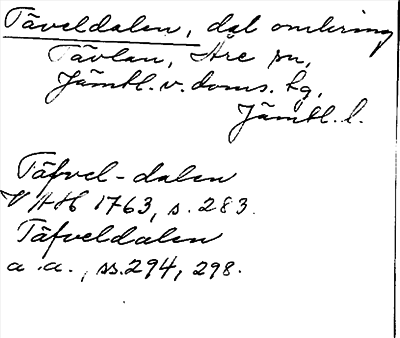 Täveldalen, dal omkring
Tävlan, Åre sn,
Jämtl. v. doms. hg,
Jämtl. l.
Täfvel-dalen
VAH 1763, s. 283.
Täfveldalen
a.a., ss. 294, 298.